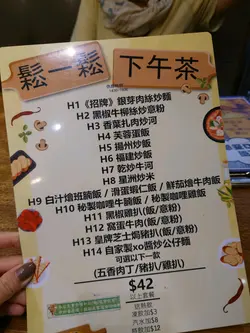 鬆一鬆 下午茶
H1《招牌》銀芽肉絲炒麵
H2 黑椒牛柳絲炒意粉
H3 香葉扎肉炒河
H4 芙蓉蛋飯
H5 揚州炒飯
H6 福建炒飯
H7 乾炒牛河
H8 星洲炒米
H9 白汁燴班腩飯 / 滑蛋蝦仁飯 / 鮮茄燴牛肉飯
H10 秘製咖喱牛腩飯 / 秘製咖喱雞飯
H11 黑椒雞扒(飯/意粉)
H12 窩蛋牛肉(飯/意粉)
H13 皇牌芝士焗豬扒(飯/意粉)
H14 自家製xo醬炒公仔麵
可選以下一款
(五香肉丁/豬扒/雞扒)
$42
以上套餐
送熱飲
凍飲加$3
汽水加$8